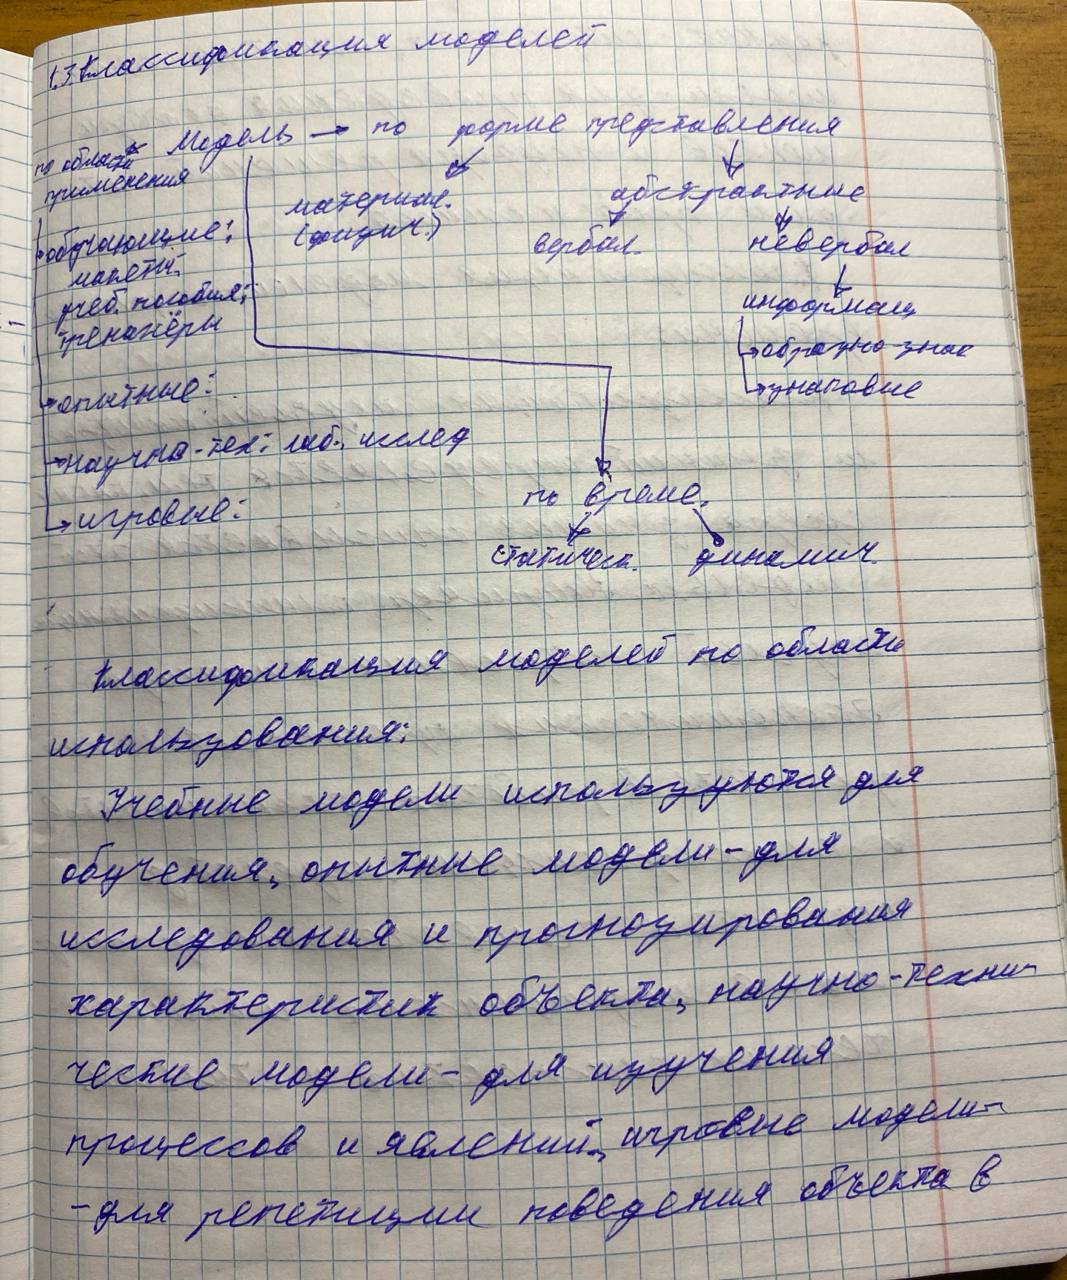 1.3. Классификация моделей
Модель → по форме представления
по области
применения
материал.
(физич.)
абстрактные
вербал.
невербал
информац
образно-знак
знаковые
обучающие:
макеты,
учеб. пособия;
тренажёры
опытные:
научно-тех: лаб., исслед
игровые:
по време.
статическ.
динамич.
Классификация моделей по области
использования:
Учебные модели используются для
обучения, опытные модели - для
исследования и прогнозирования
характеристик объекта, научно-техни-
ческие модели - для изучения
процессов и явлений, игровые модели-
-для репетиции поведения объекта в